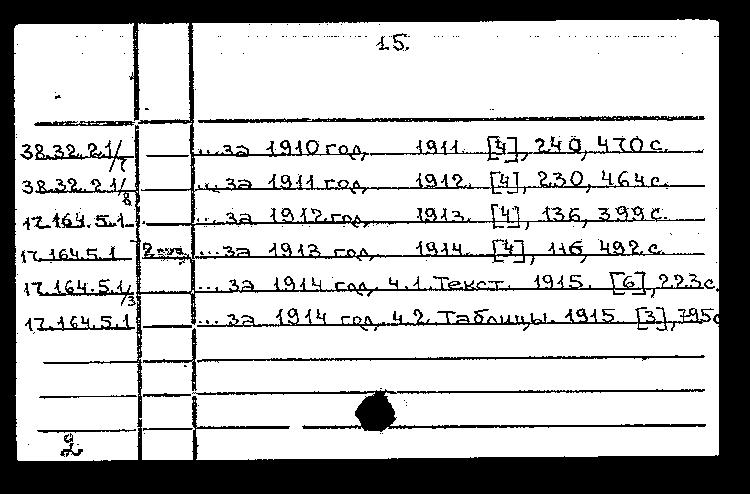 15.
38.32.2.1/7 ...за 1910 год, 1911. [4], 240, 470 с.
38.32.2.1/8 ... за 1911 год, 1912. [4], 230, 464 с.
17.164.5.1 ... за 1912 год, 1913. [4], 136, 399 с.
17.164.5.1 2 экз. ... за 1913 год, 1914. [4], 116, 492 с.
17.164.5.1/3 ... за 1914 год, ч.1. Текст. 1915. [6], 223 с.
17.164.5.1 ... за 1914 год, ч.2. Таблицы. 1915. [3], 795 с
2